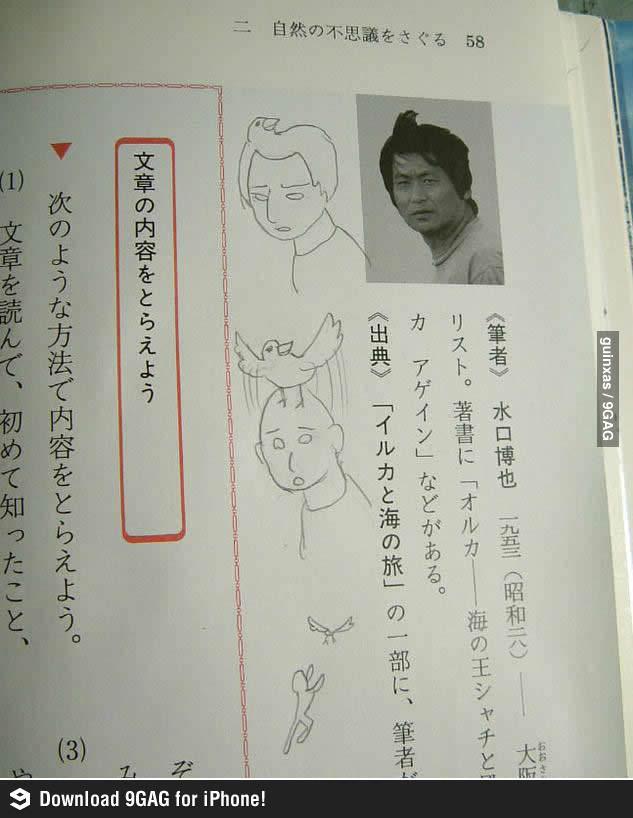 二 自然の不思議をさぐる 58
《筆者》 水口博也 一九五三(昭和二八)── 大阪
おおさ
リスト。著書に「オルカ──海の王シャチと
カ アゲイン」などがある。
《出典》 「イルカと海の旅」の一部に、筆者が
文章の内容をとらえよう
▼ 次のような方法で内容をとらえよう。
(1) 文章を読んで、初めて知ったこと、
(3)
ぞ
み
や
guinxas / 9GAG
Download 9GAG for iPhone!